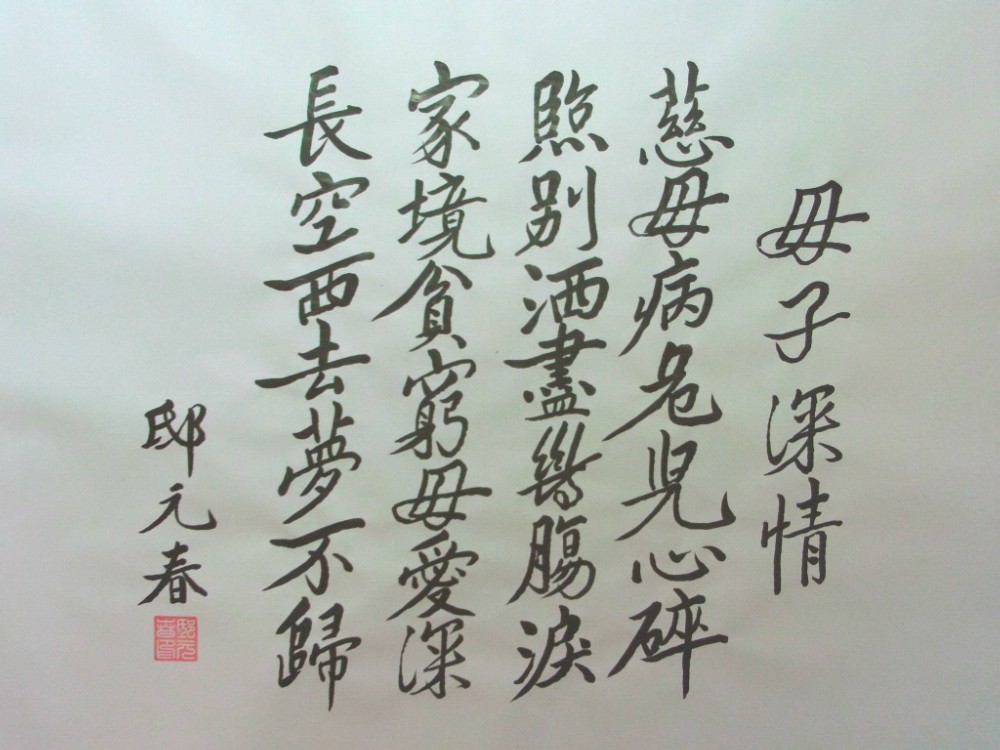 母子深情
慈母病危児心碎
臨别洒盡斷腸淚
家境貧窮母愛深
長空西去夢不歸
邸元春
邸元春印